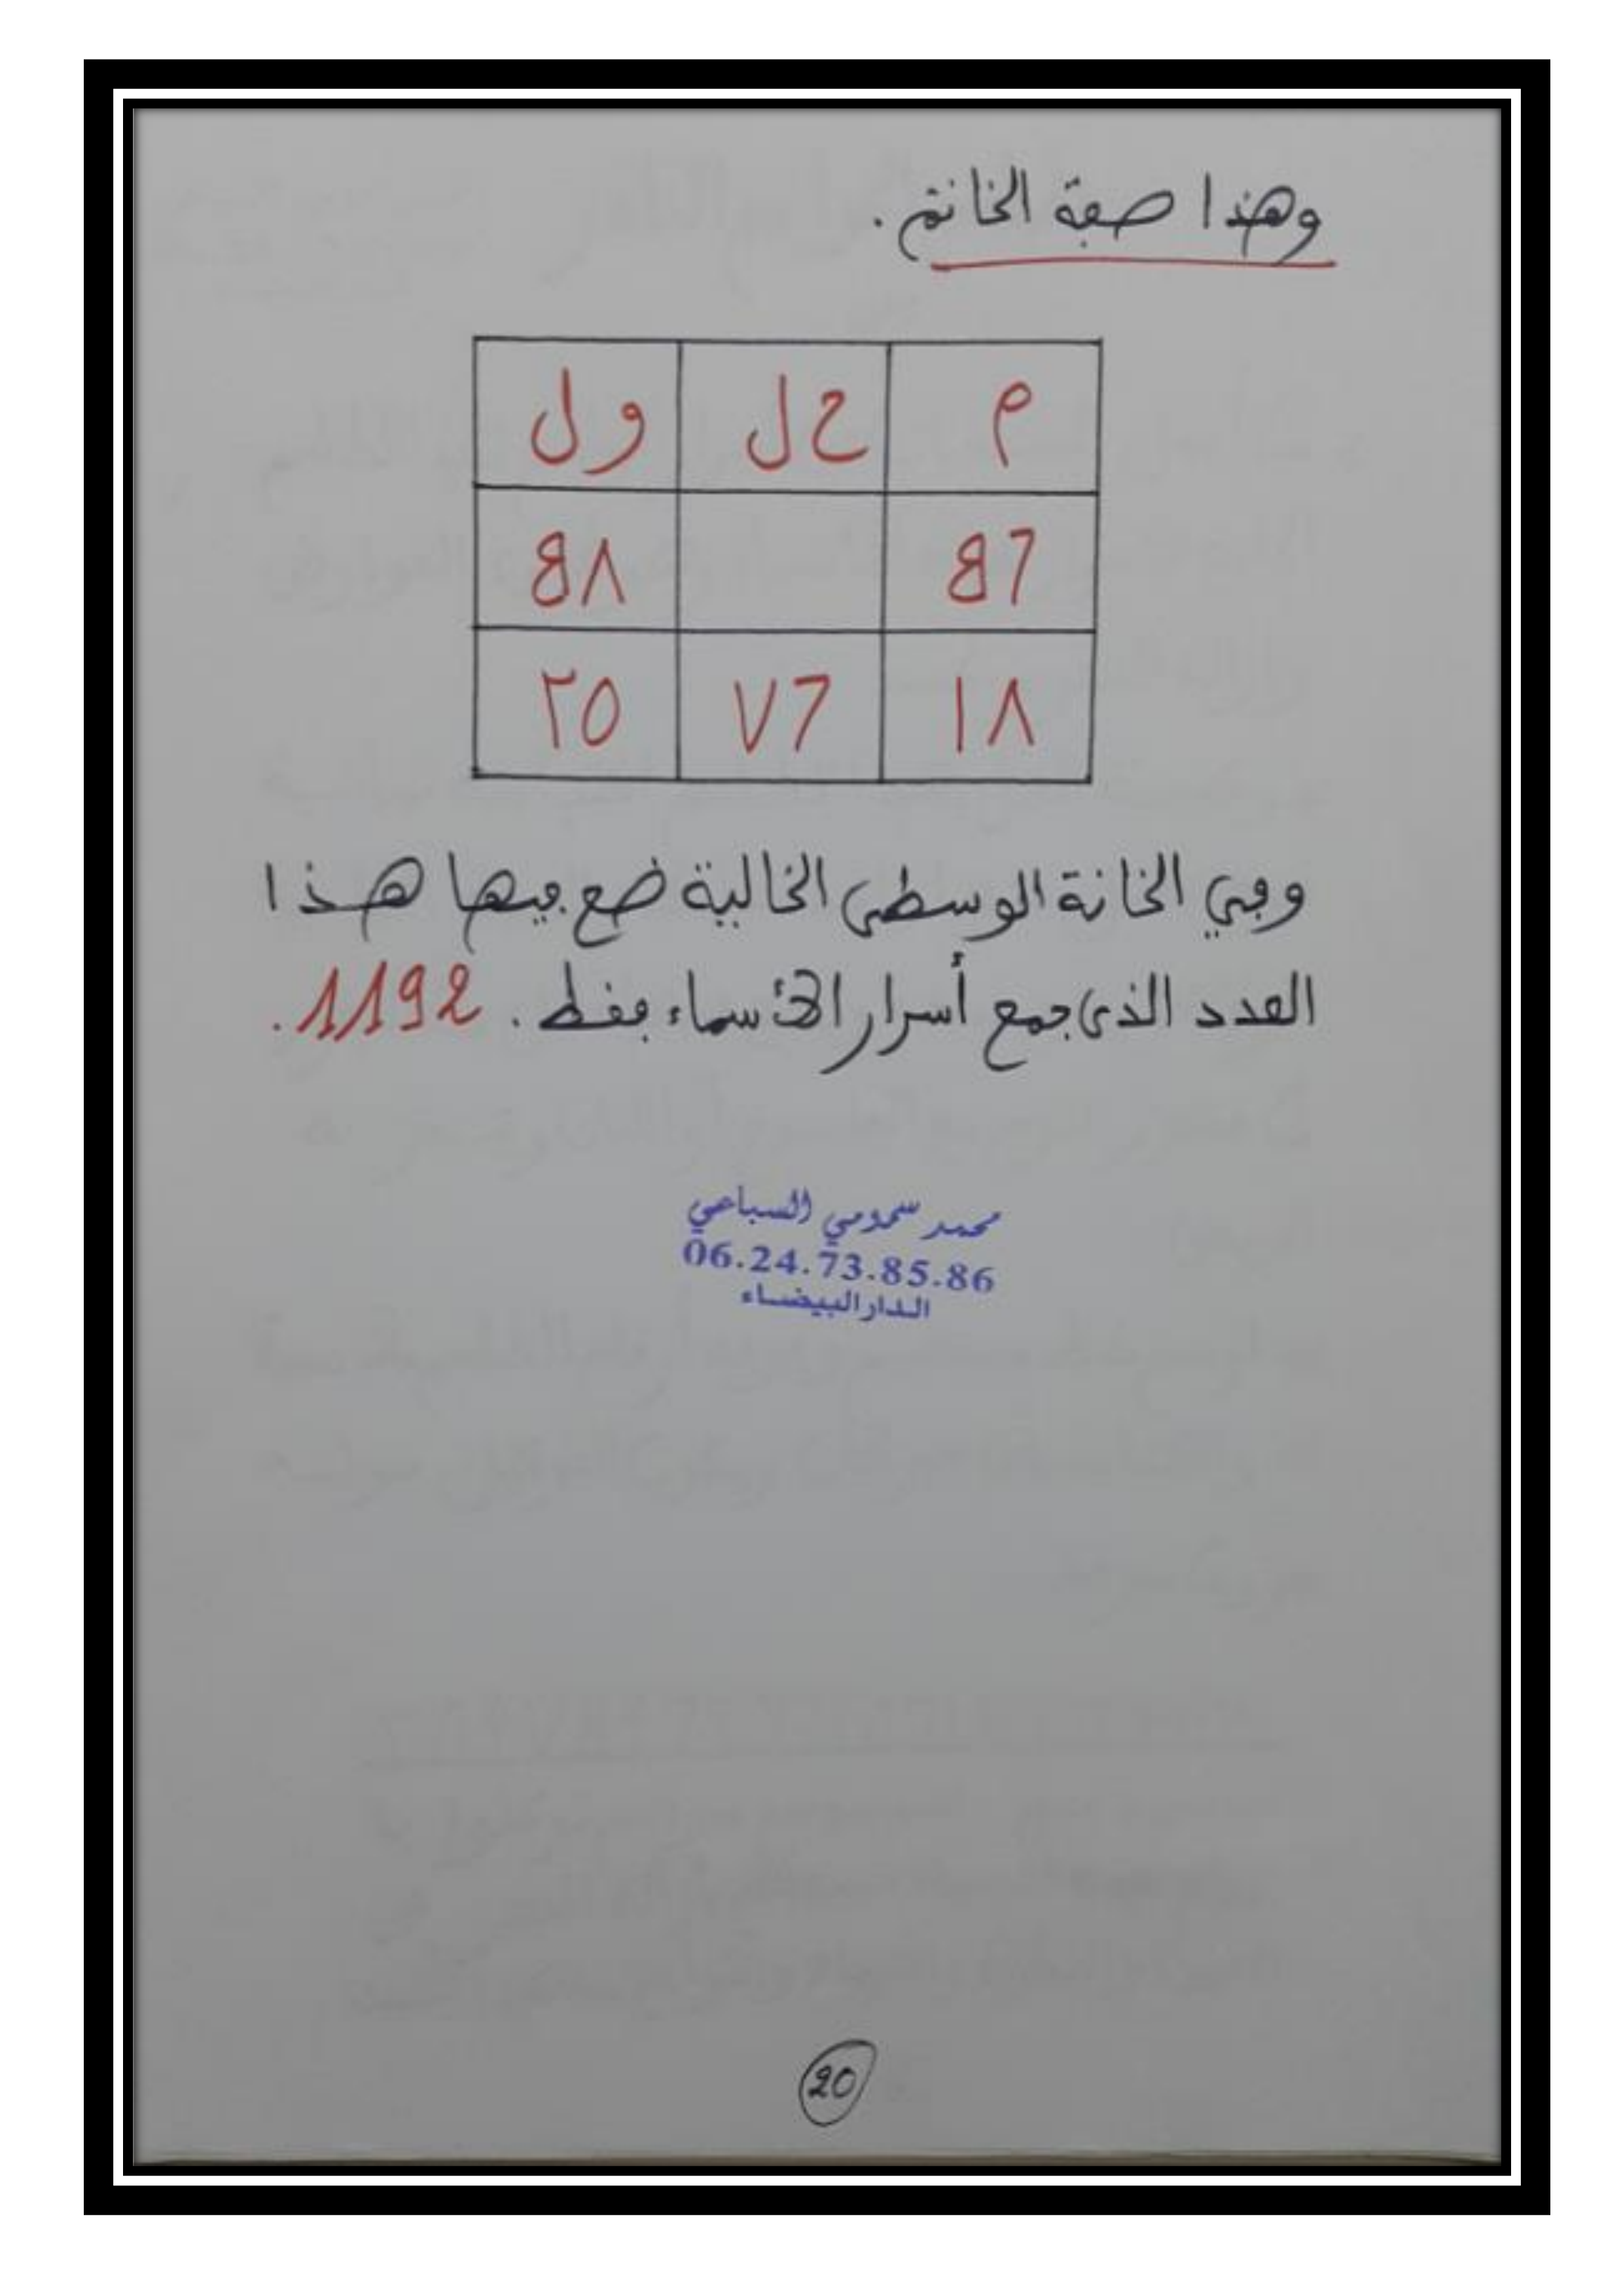 وهذا صفة الخاتم.
م ح ل و ل
٤٦ ٤٨
١٨ ٧٦ ٢٥
وفي الخانة الوسطى الخالية ضع فيها هذا
العدد الذي جمع أسرار الأسماء فقط. 1192.
محمد سمومي السباعي
06.24.73.85.86
الدار البيضاء
20